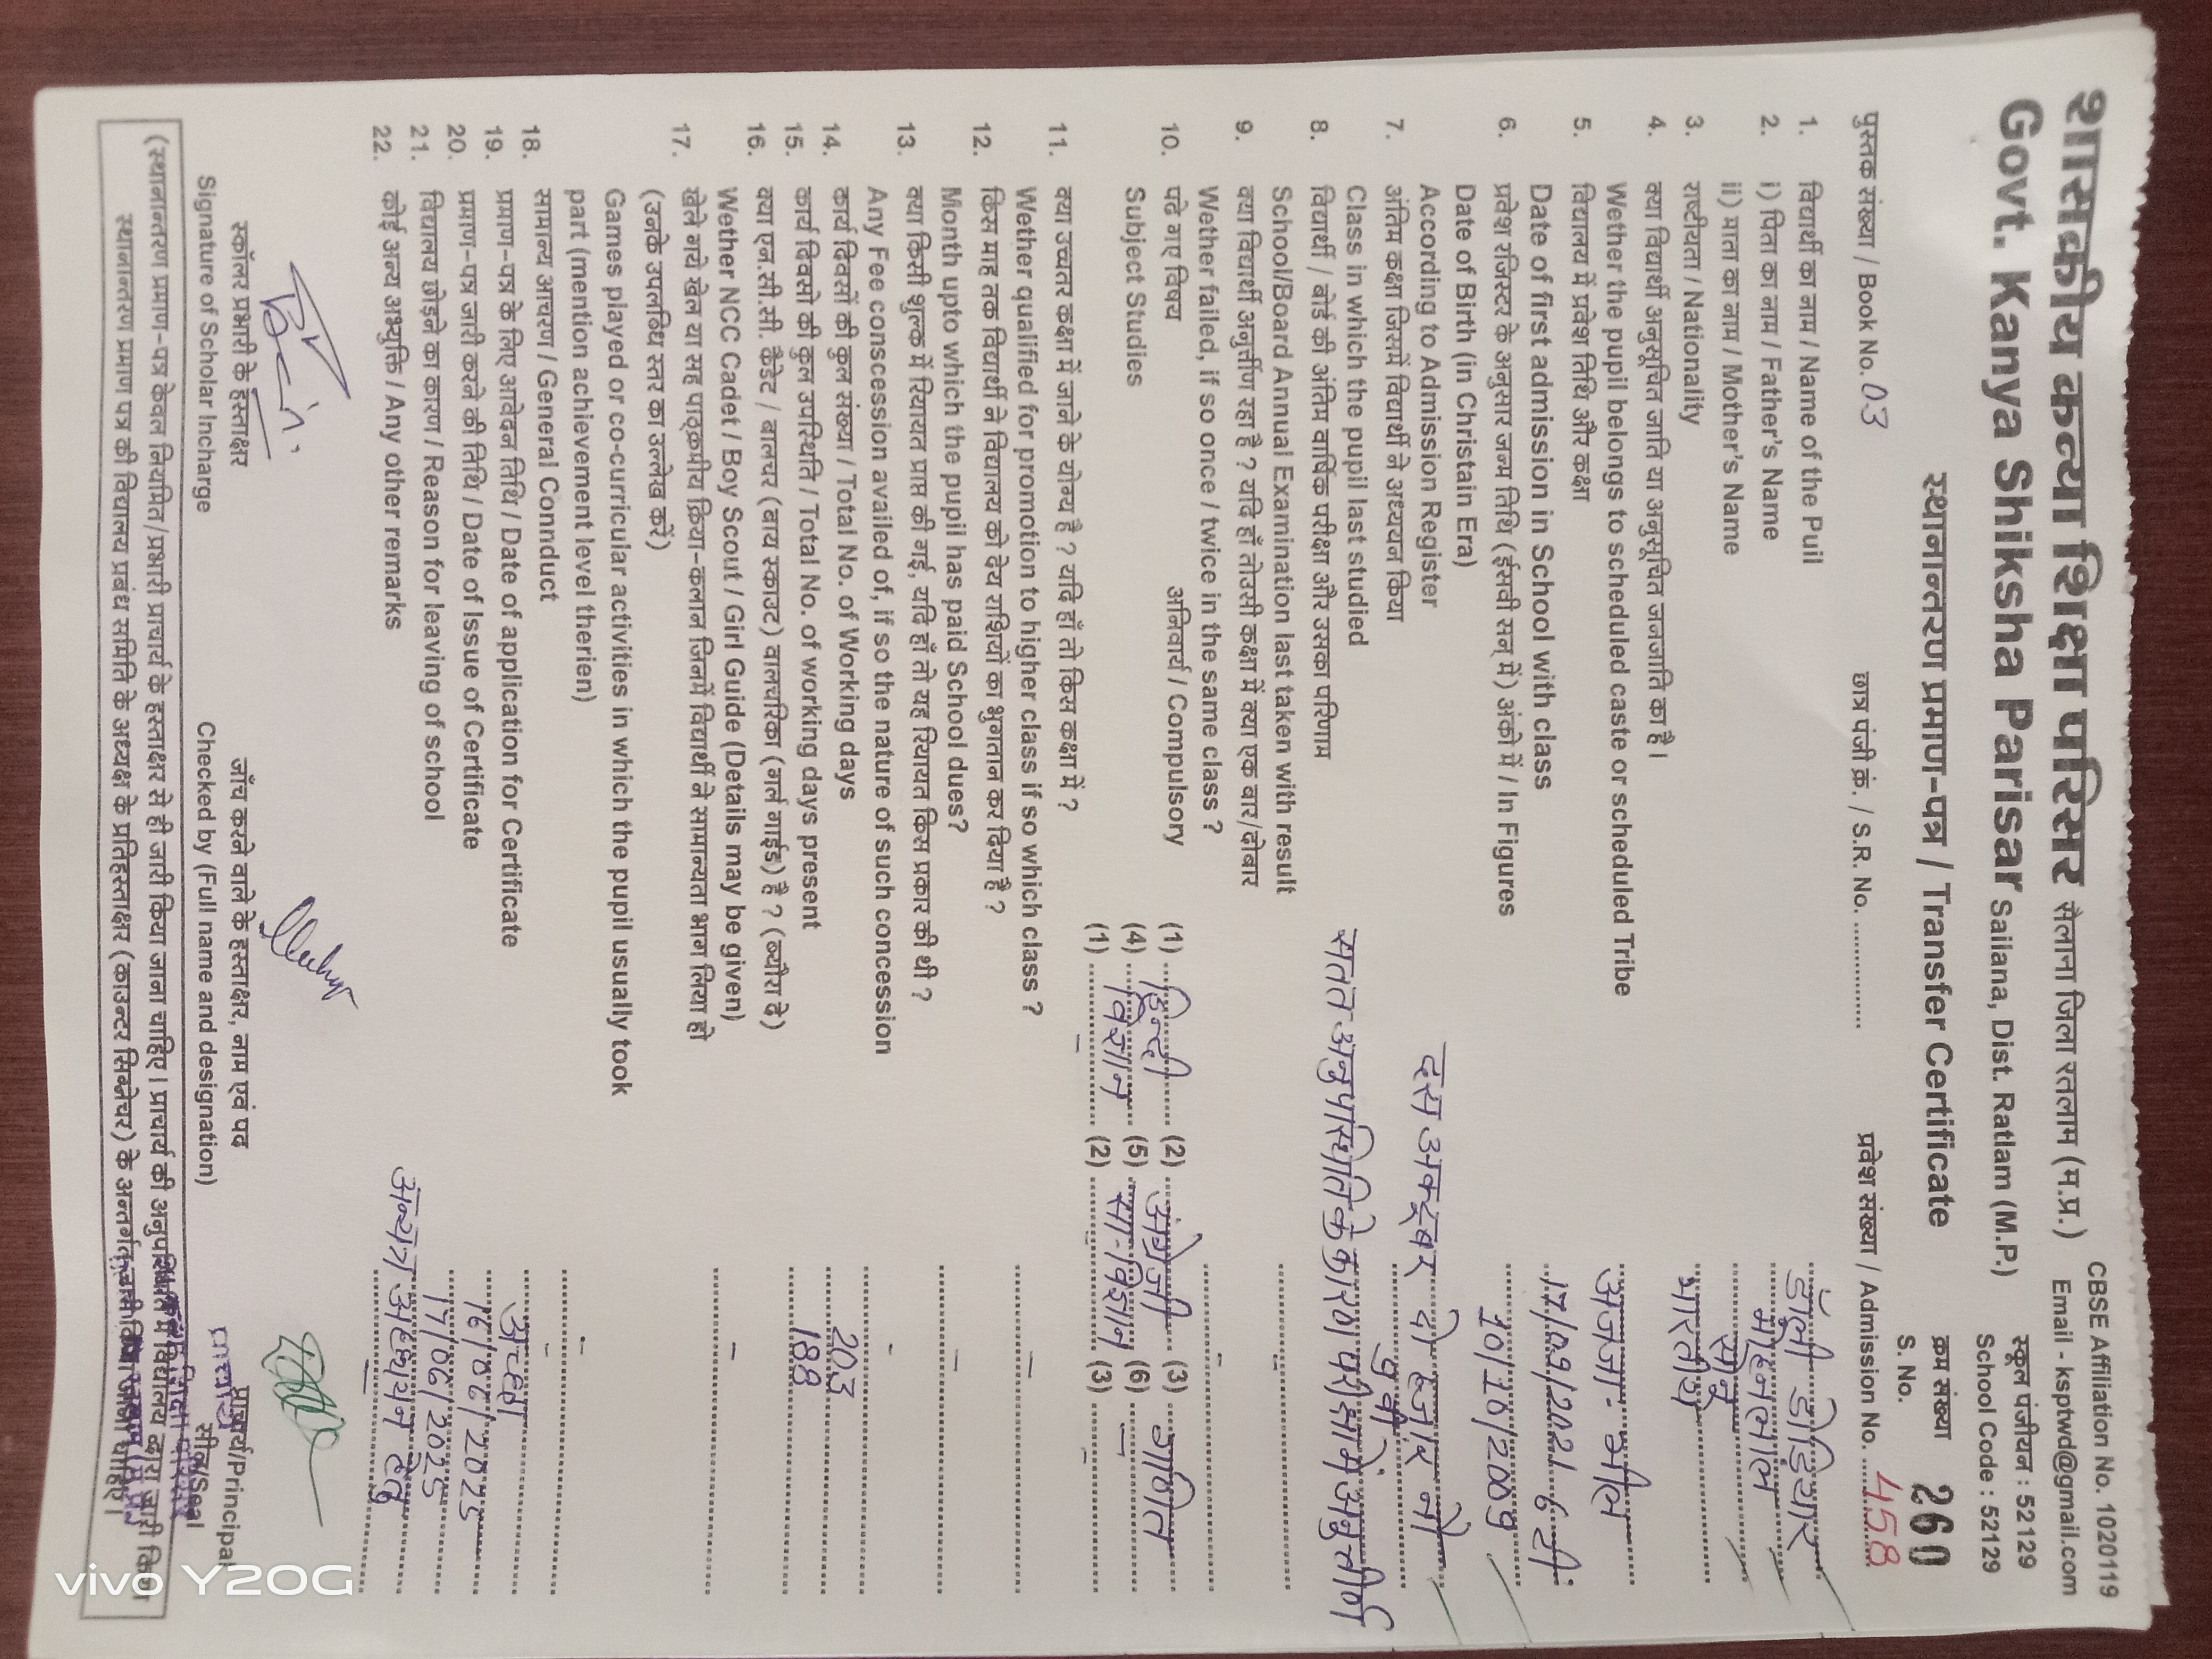 CBSE Affiliation No. 1020119
शासकीय कन्या शिक्षा परिसर सैलाना जिला रतलाम (म.प्र.) Email - ksptwd@gmail.com
Govt. Kanya Shiksha Parisar Sailana, Dist. Ratlam (M.P.)
स्कूल पंजीयन : 52129
School Code : 52129
स्थानान्तरण प्रमाण-पत्र / Transfer Certificate
क्रम संख्या
S. No. 260
पुस्तक संख्या / Book No. 03 छात्र पंजी क्रं. / S.R. No. .............. प्रवेश संख्या / Admission No. 458
1. विद्यार्थी का नाम / Name of the Puil
2. i) पिता का नाम / Father's Name मोहनलाल
ii) माता का नाम / Mother's Name
3. राष्टीयता / Nationality भारतीय
4. क्या विद्यार्थी अनुसूचित जाति या अनुसूचित जनजाति का है।
Wether the pupil belongs to scheduled caste or scheduled Tribe अ.ज.जा - भील
5. विद्यालय में प्रवेश तिथि और कक्षा
Date of first admission in School with class 17/09/2021 6 टी
6. प्रवेश रजिस्टर के अनुसार जन्म तिथि (ईसवी सन् में) अंको में / In Figures 10/10/2009
Date of Birth (in Christain Era)
According to Admission Register दस अक्टूबर दो हजार नौ
7. अंतिम कक्षा जिसमें विद्यार्थी ने अध्ययन किया
Class in which the pupil last studied 9 वी
8. विद्यार्थी / बोर्ड की अंतिम वार्षिक परीक्षा और उसका परिणाम सतत अनुपस्थिति के कारण परीक्षा में अनुत्तीर्ण
School/Board Annual Examination last taken with result
9. क्या विद्यार्थी अनुर्तीण रहा है ? यदि हाँ तोउसी कक्षा में क्या एक बार/दोबार
Wether failed, if so once / twice in the same class ? -
10. पढे गए विषय अनिवार्य / Compulsory (1) हिन्दी (2) अंग्रेजी (3) गणित
Subject Studies (4) विज्ञान (5) सा. विज्ञान (6) -
(1) - (2) (3) -
11. क्या उच्चतर कक्षा में जाने के योग्य है ? यदि हाँ तो किस कक्षा में ?
Wether qualified for promotion to higher class if so which class ? -
12. किस माह तक विद्यार्थी ने विद्यालय को देय राशियों का भुगतान कर दिया है ?
Month upto which the pupil has paid School dues? -
13. क्या किसी शुल्क में रियायत प्राप्त की गई, यदि हाँ तो यह रियायत किस प्रकार की थी ?
Any Fee conscession availed of, if so the nature of such concession -
14. कार्य दिवसों की कुल संख्या / Total No. of Working days 203
15. कार्य दिवसो की कुल उपस्थिति / Total No. of working days present 188
16. क्या एन.सी.सी. कैडेट / बालचर (बाय स्काउट) वालचरिका (गर्ल गाईड) है ? (ब्यौरा दे)
Wether NCC Cadet / Boy Scout / Girl Guide (Details may be given) -
17. खेले गये खेल या सह पाठ्क्रमीय क्रिया-कलान जिनमें विद्यार्थी ने सामान्यता भाग लिया हो
(उनके उपलब्धि स्तर का उल्लेख करें)
Games played or co-curricular activities in which the pupil usually took
part (mention achievement level therien) -
18. सामान्य आचरण / General Connduct अच्छा
19. प्रमाण-पत्र के लिए आवेदन तिथि / Date of application for Certificate 16/06/2025
20. प्रमाण-पत्र जारी करने की तिथि / Date of Issue of Certificate 17/06/2025
21. विद्यालय छोड़ने का कारण / Reason for leaving of school अन्यत्र अध्ययन हेतु
22. कोई अन्य अभ्युक्ति / Any other remarks -
स्कॉलर प्रभारी के हस्ताक्षर जाँच करने वाले के हस्ताक्षर, नाम एवं पद प्राचार्य/Principal
Signature of Scholar Incharge Checked by (Full name and designation) सील/Seal
प्राचार्य
(स्थानान्तरण प्रमाण-पत्र केवल नियमित/प्रभारी प्राचार्य के हस्ताक्षर से ही जारी किया जाना चाहिए। प्राचार्य की अनुपस्थिति में विद्यालय द्वारा जारी किया
स्थानान्तरण प्रमाण पत्र की विद्यालय प्रबंध समिति के अध्यक्ष के प्रतिहस्ताक्षर (काउन्टर सिग्नेचर) के अन्तर्गत
vivo Y20G